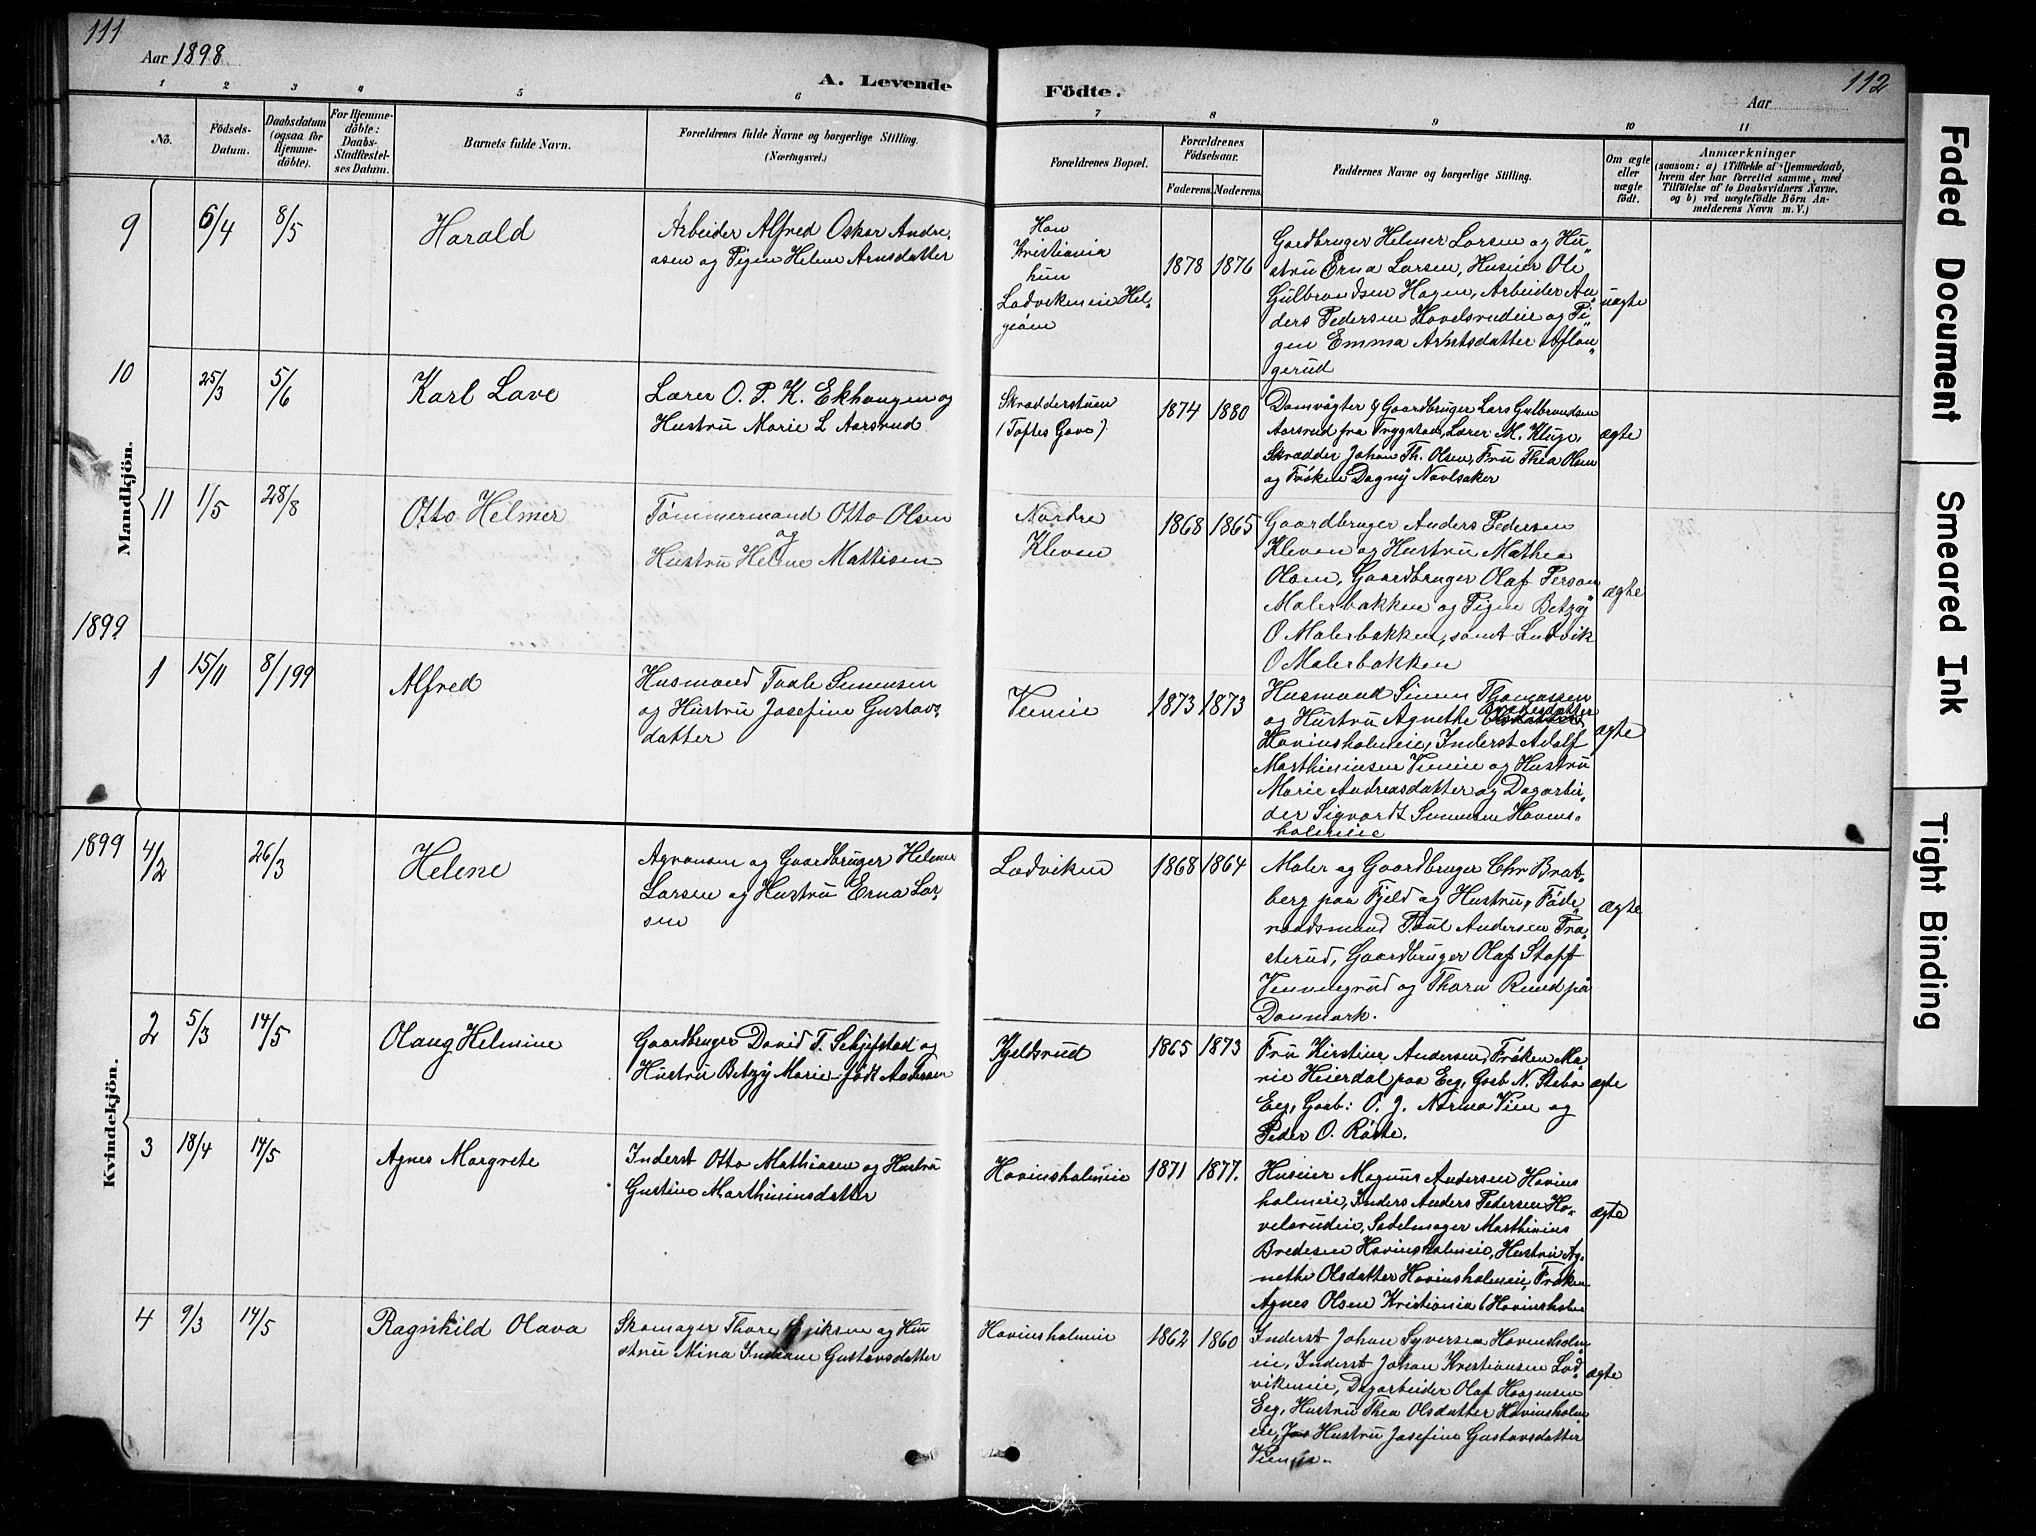 111
Aar 1898
A. Levende
Födte.
Aar
112
1
2
3
4
5
6
7
8
9
10
11
No.
Födsels-
Datum.
Daabsdatum
(ogsaa for
Hjemme-
döbte).
For Hjemme-
döbte:
Daabs-
Stadfæstel-
ses Datum.
Barnets fulde Navn.
Forældrenes fulde Navne og borgerlige Stilling.
(Næringsvei.)
Forældrenes Bopæl.
Forældrenes
Födselsaar.
Faderens.
Moderens.
Faddernes Navne og borgerlige Stilling.
Om ægte
eller
uægte
födt.
Anmærkninger
(saasom: a) i Tilfælde af Hjemmedaab,
hvem der har forrettet samme, med
Tilföielse af to Daabsvidners Navne,
og b) ved uægtefödte Börn An-
melderens Navn m. V.)
Mandkjön.
9
6/4
8/5
Harald
Arbeider Alfred Oskar Andre-
asen og Pigen Helene Arnsdatter
Han
Kristiania
hun
Ladvikeneie Hel-
gøen
1878
1876
Gardbruger Helmer Larsen og Hu-
stru Erna Larsen, Huseier Ole
Gulbrandsen Hagen, Arbeider An-
ders Pedersen Hovelsrudeie og Pi-
gen Emma Arntsdatter
gerud
uægte
10
25/3
5/6
Karl Lave
Lærer O. P. K. Ekhaugen og
Hustru Marie L Aarsrud
Skrædderstuen
(Toftes Gave)
1874
1880
Damvågter & Gaardbruger Lars Gulbrandsen
Aarsrud fra Trygstad, Lærer M. Kluge,
Skrædder Johan Th. Olsen, Fru Thea Olsen
og Frøken Dagny Navlsaker
ægte
11
1/5
28/8
Otto Helmer
Tømmermand Otto Olsen
og
Hustru Helene Mattisen
Nordre
Kleven
1868
1865
Gaardbruger Anders Pedersen
Kleven og Hustru Mathea
Olsen, Gaardbruger Olaf Person
Malerbakken og Pigen Betzy
O Malerbakken, samt Ludvik
O Malerbakken
ægte
1899
1
15/11
8/1 99
Alfred
Husmand Taale Simensen
og Hustru Josefine Gustavs-
datter
Vennie
1873
1873
Husmand Simen Thomassen
og Hustru Agnethe
Hovinsholmeie, Inderst Adolf
Marthiniusen Vennie og Hustru
Marie Andreasdatter og Dagarbei-
der Sigvardt Simensen Hovins-
holmeie
ægte
Kvindekjön.
1899
4/2
26/3
Helene
Agronom og Gaardbruger Helmer
Larsen og Hustru Erna Lar-
sen
Ladviken
1868
1864
Maler og Gaardbruger Chr Brat-
berg paa Fjeld og Hustru, Føde-
raadsmand Paul Andersen Fra-
sterud, Gaardbruger Olaf Staff
Vennengrud og Thora Rund på
Danmark.
ægte
2
5/3
14/5
Olaug Helmine
Gaardbruger David T. Schjefstad og
Hustru Betzy Marie født Andersen
Kjeldsrud
1865
1873
Fru Kirstine Andersen, Frøken Ma-
rie Heierdal paa Eeg, Garb N. Stebo
Eeg, Gaarb: O. J. Norma Vien og
Peder O. Røste.
ægte
3
18/4
14/5
Agnes Margrete
Inderst Otto Mathiasen og Hustru
Gustine Marthiniusdatter
Hovinsholmeie
1871
1877.
Huseier Magnus Andersen Hovins
holmeie, Inders Anders Pedersen Ho-
velsrudeie, Sadelmager Marthinius
Bredesen Hovinsholmeie, Hustru Ag-
nethe Olsdatter Hovinsholmeie, Frøken
Agnes Olsen Kristiania (Hovinsholm
ægte
4
9/3
14/5
Ragnhild Olava
Skomager Thore Eriksen og Hu
stru Mina Indiane Gustavsdatter
Hovinsholmeie
1862
1860
Inderst Johan Syversen Hovinsholm
eie, Inderst Johan Kristiansen Lad-
vikeneie, Dagarbeider Olaf Haagensen
Eeg, Hustru Thea Olsdatter Hovinsholm
eie, Hustru Josefine Gustavsdatter
Vennie.
ægte
Faded Document
Smeared Ink
Tight Binding